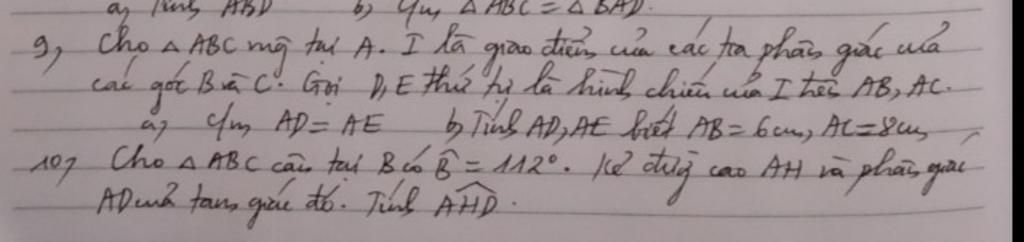 a, Tính ABD b, C/m △ ABC = △ BAD.
9, Cho △ ABC vg tại A. I là giao điểm của các tia phân giác của
các góc B và C. Gọi D, E thứ tự là hình chiếu của I trên AB, AC.
a, C/m AD = AE b, Tính AD, AE biết AB = 6cm, AC = 8cm
10, Cho △ ABC cân tại B có B̂ = 112°. Kẻ đường cao AH và phân giác
AD của tam giác đó. Tính AHD.